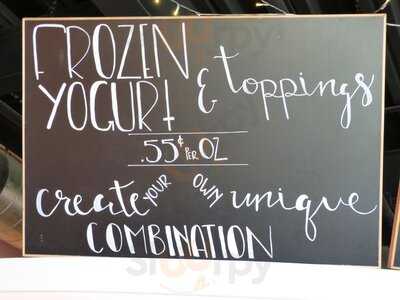 FROZEN YOGURT & toppings
.55¢ PER OZ
create YOUR OWN unique
COMBINATION